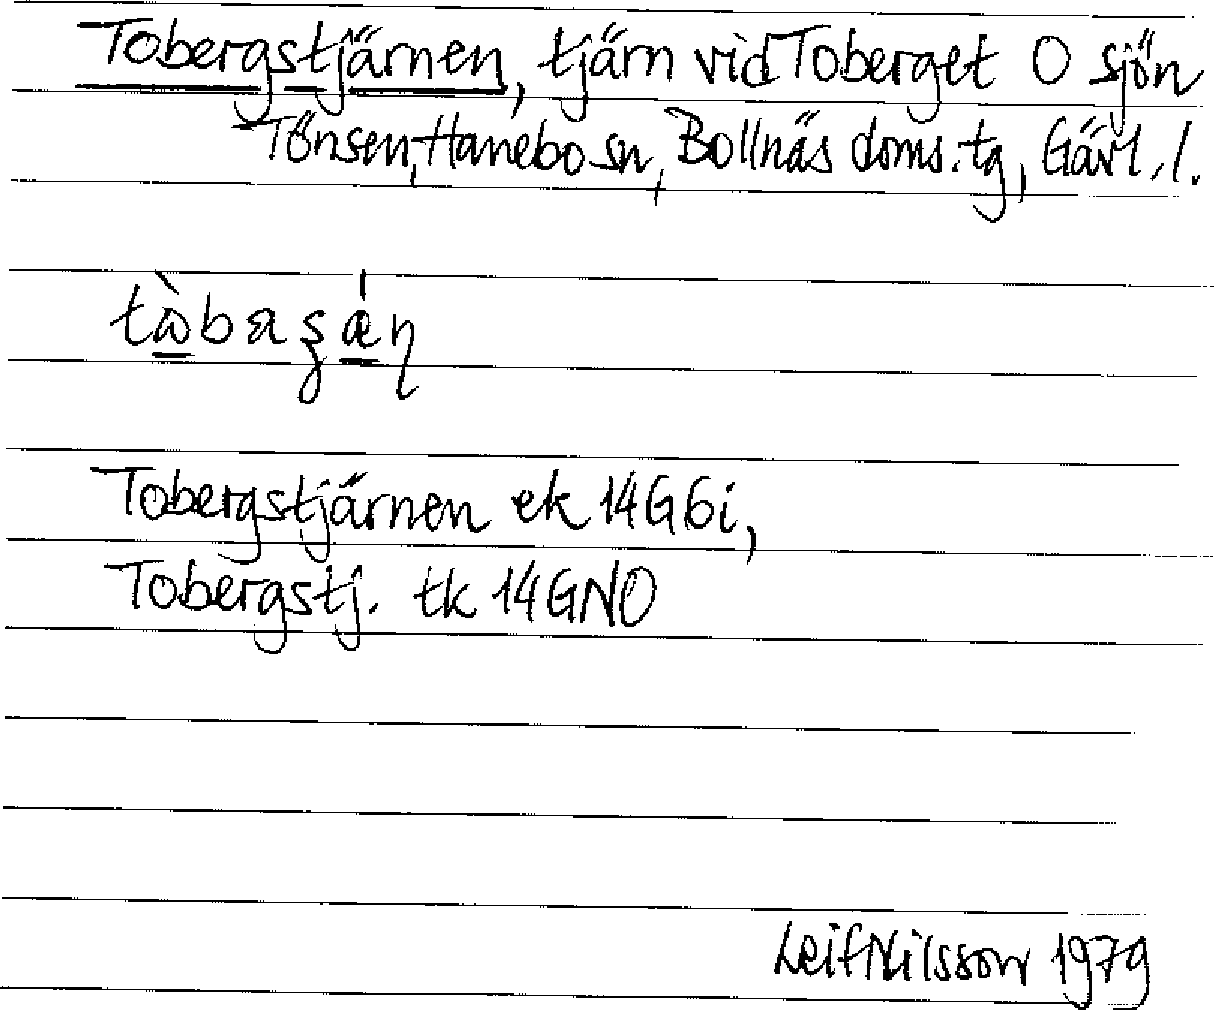 Tobergstjärnen, tjärn vid Toberget O sjön
Tönsen, Hanebo sn, Bollnäs doms.tg, Gävl.l.
Tobergstjärnen ek 14G6i,
Tobergstj. tk 14GNO
Leif Nilsson 1979